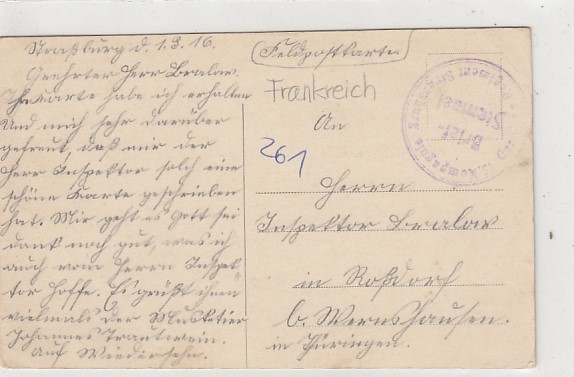 Straßburg d. 1.3.16.
Geehrter Herr Bralow.
Ihre Karte habe ich erhalten
Und mich sehr darüber
gefreut, daß mir der
Herr Inspektor solch eine
schöne Karte geschrieben
hat. Mir geht es Gott sei
dank noch gut, was ich
auch vom Herrn Inspek-
tor hoffe. Es grüßt ihnen
vielmals der Musketier
Johannes Trautwein.
Auf Wiedersehn.
Feldpostkarte
Frankreich
An
261
Herrn
Inspektor Bralow
in Roßdorf
b. Wernshausen.
in Thüringen.
Kompagnie
Brief-
Stempel